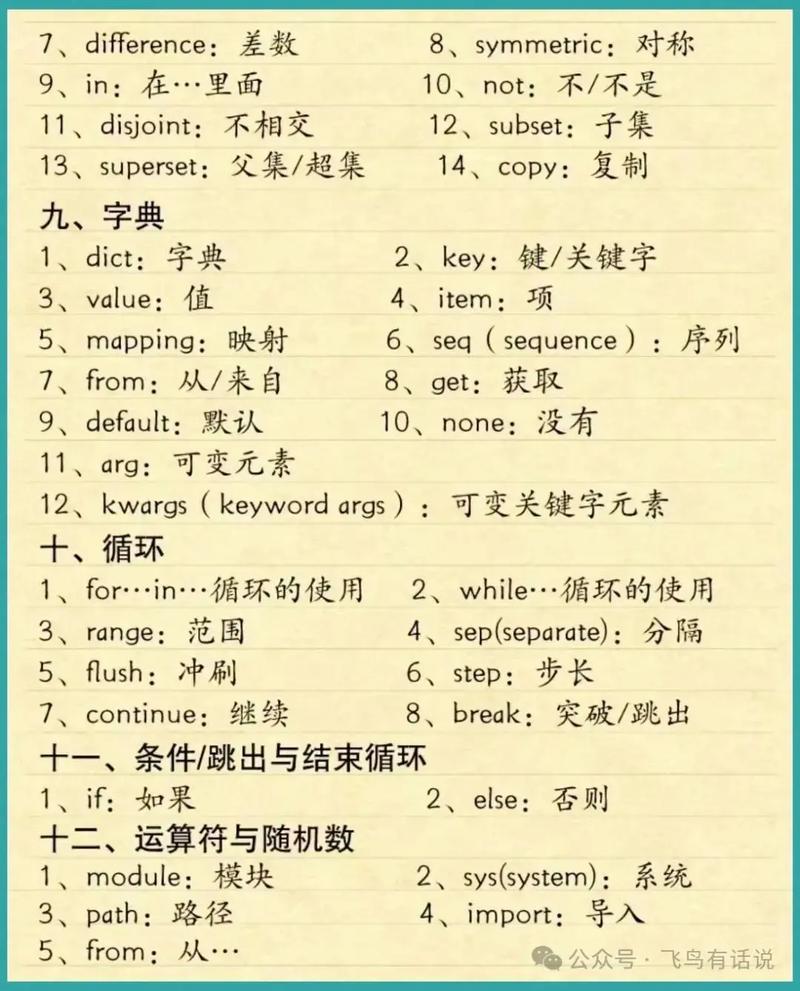 7、difference：差数 8、symmetric：对称
9、in：在…里面 10、not：不/不是
11、disjoint：不相交 12、subset：子集
13、superset：父集/超集 14、copy：复制
九、字典
1、dict：字典 2、key：键/关键字
3、value：值 4、item：项
5、mapping：映射 6、seq（sequence）：序列
7、from：从/来自 8、get：获取
9、default：默认 10、none：没有
11、arg：可变元素
12、kwargs（keyword args）：可变关键字元素
十、循环
1、for…in…循环的使用 2、while…循环的使用
3、range：范围 4、sep(separate)：分隔
5、flush：冲刷 6、step：步长
7、continue：继续 8、break：突破/跳出
十一、条件/跳出与结束循环
1、if：如果 2、else：否则
十二、运算符与随机数
1、module：模块 2、sys(system)：系统
3、path：路径 4、import：导入
5、from：从…
公众号·飞鸟有话说